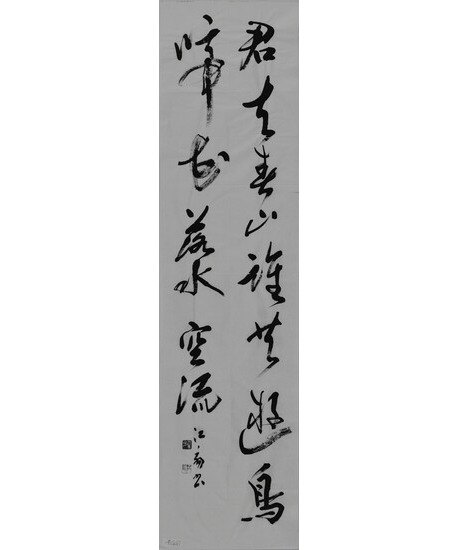 君去春山誰共遊鳥
啼花落水空流